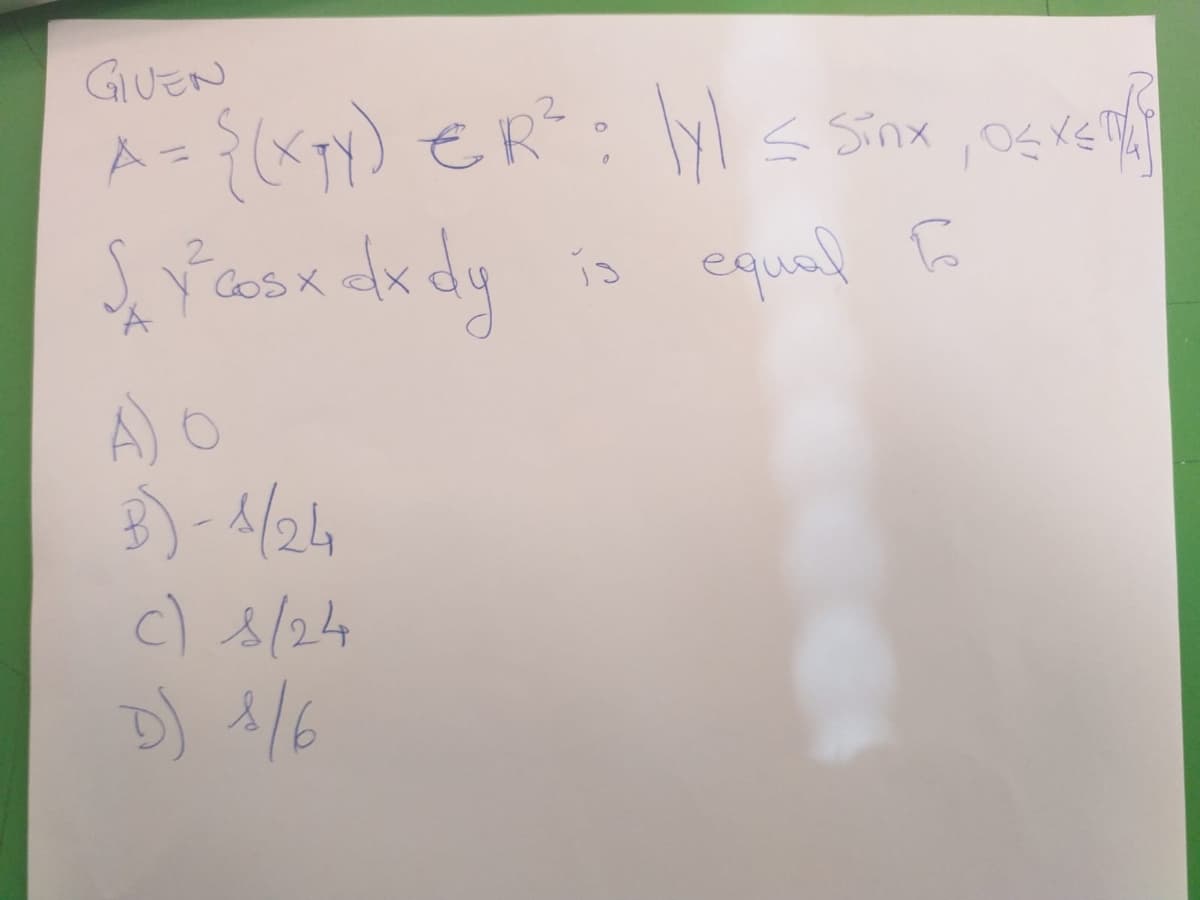 GIVEN
A = {(x,y) ∈ R² : |y| ≤ sinx, 0≤x≤π/4}
∫_A y² cosx dx dy is equal to
A) 0
B) -1/24
C) 1/24
D) 1/6